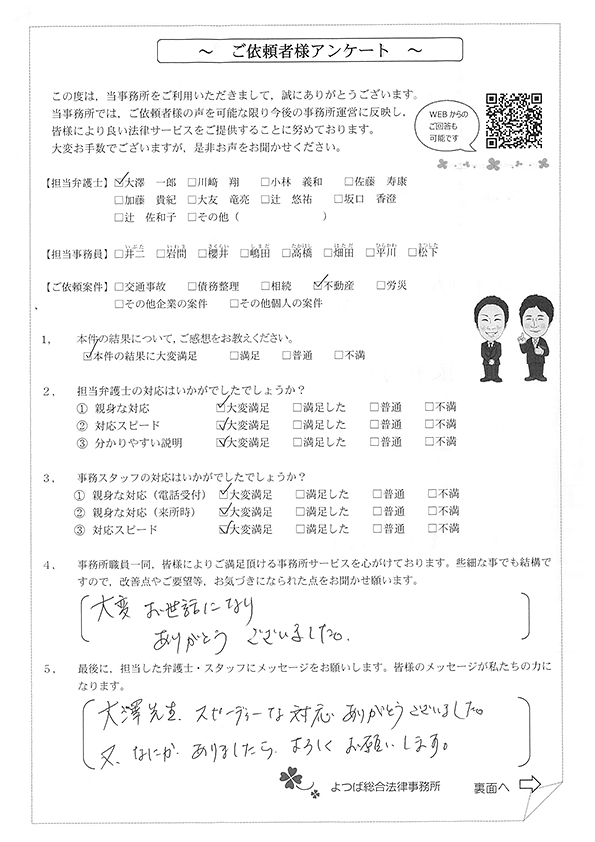 ～　ご依頼者様アンケート　～
この度は，当事務所をご利用いただきまして，誠にありがとうございます。
当事務所では，ご依頼者様の声を可能な限り今後の事務所運営に反映し，
皆様により良い法律サービスをご提供することに努めております。
大変お手数でございますが，是非お声をお聞かせください。
WEBからの
ご回答も
可能です
【担当弁護士】☑大澤　一郎　□川﨑　翔　□小林　義和　□佐藤　寿康
□加藤　貴紀　□大友　竜亮　□辻　悠祐　□坂口　香澄
□辻　佐和子　□その他（　　　　　）
【担当事務員】□井二　□岩間　□櫻井　□嶋田　□高橋　□畑田　□平川　□松下
【ご依頼案件】□交通事故　□債務整理　□相続　☑不動産　□労災
□その他企業の案件　□その他個人の案件
1，　本件の結果について，ご感想をお教えください。
☑本件の結果に大変満足　□満足　□普通　□不満
2，　担当弁護士の対応はいかがでしたでしょうか？
① 親身な対応　☑大変満足　□満足した　□普通　□不満
② 対応スピード　☑大変満足　□満足した　□普通　□不満
③ 分かりやすい説明　☑大変満足　□満足した　□普通　□不満
3，　事務スタッフの対応はいかがでしたでしょうか？
① 親身な対応（電話受付）☑大変満足　□満足した　□普通　□不満
② 親身な対応（来所時）☑大変満足　□満足した　□普通　□不満
③ 対応スピード　☑大変満足　□満足した　□普通　□不満
4，　事務所職員一同，皆様によりご満足頂ける事務所サービスを心がけております。些細な事でも結構で
すので，改善点やご要望等，お気づきになられた点をお聞かせ願います。
大変 お世話になり
ありがとう ございました。
5，　最後に，担当した弁護士・スタッフにメッセージをお願いします。皆様のメッセージが私たちの力に
なります。
大澤先生、スピーディーな対応 ありがとうございました。
又、なにか ありましたら、よろしく お願いします。
よつば総合法律事務所
裏面へ